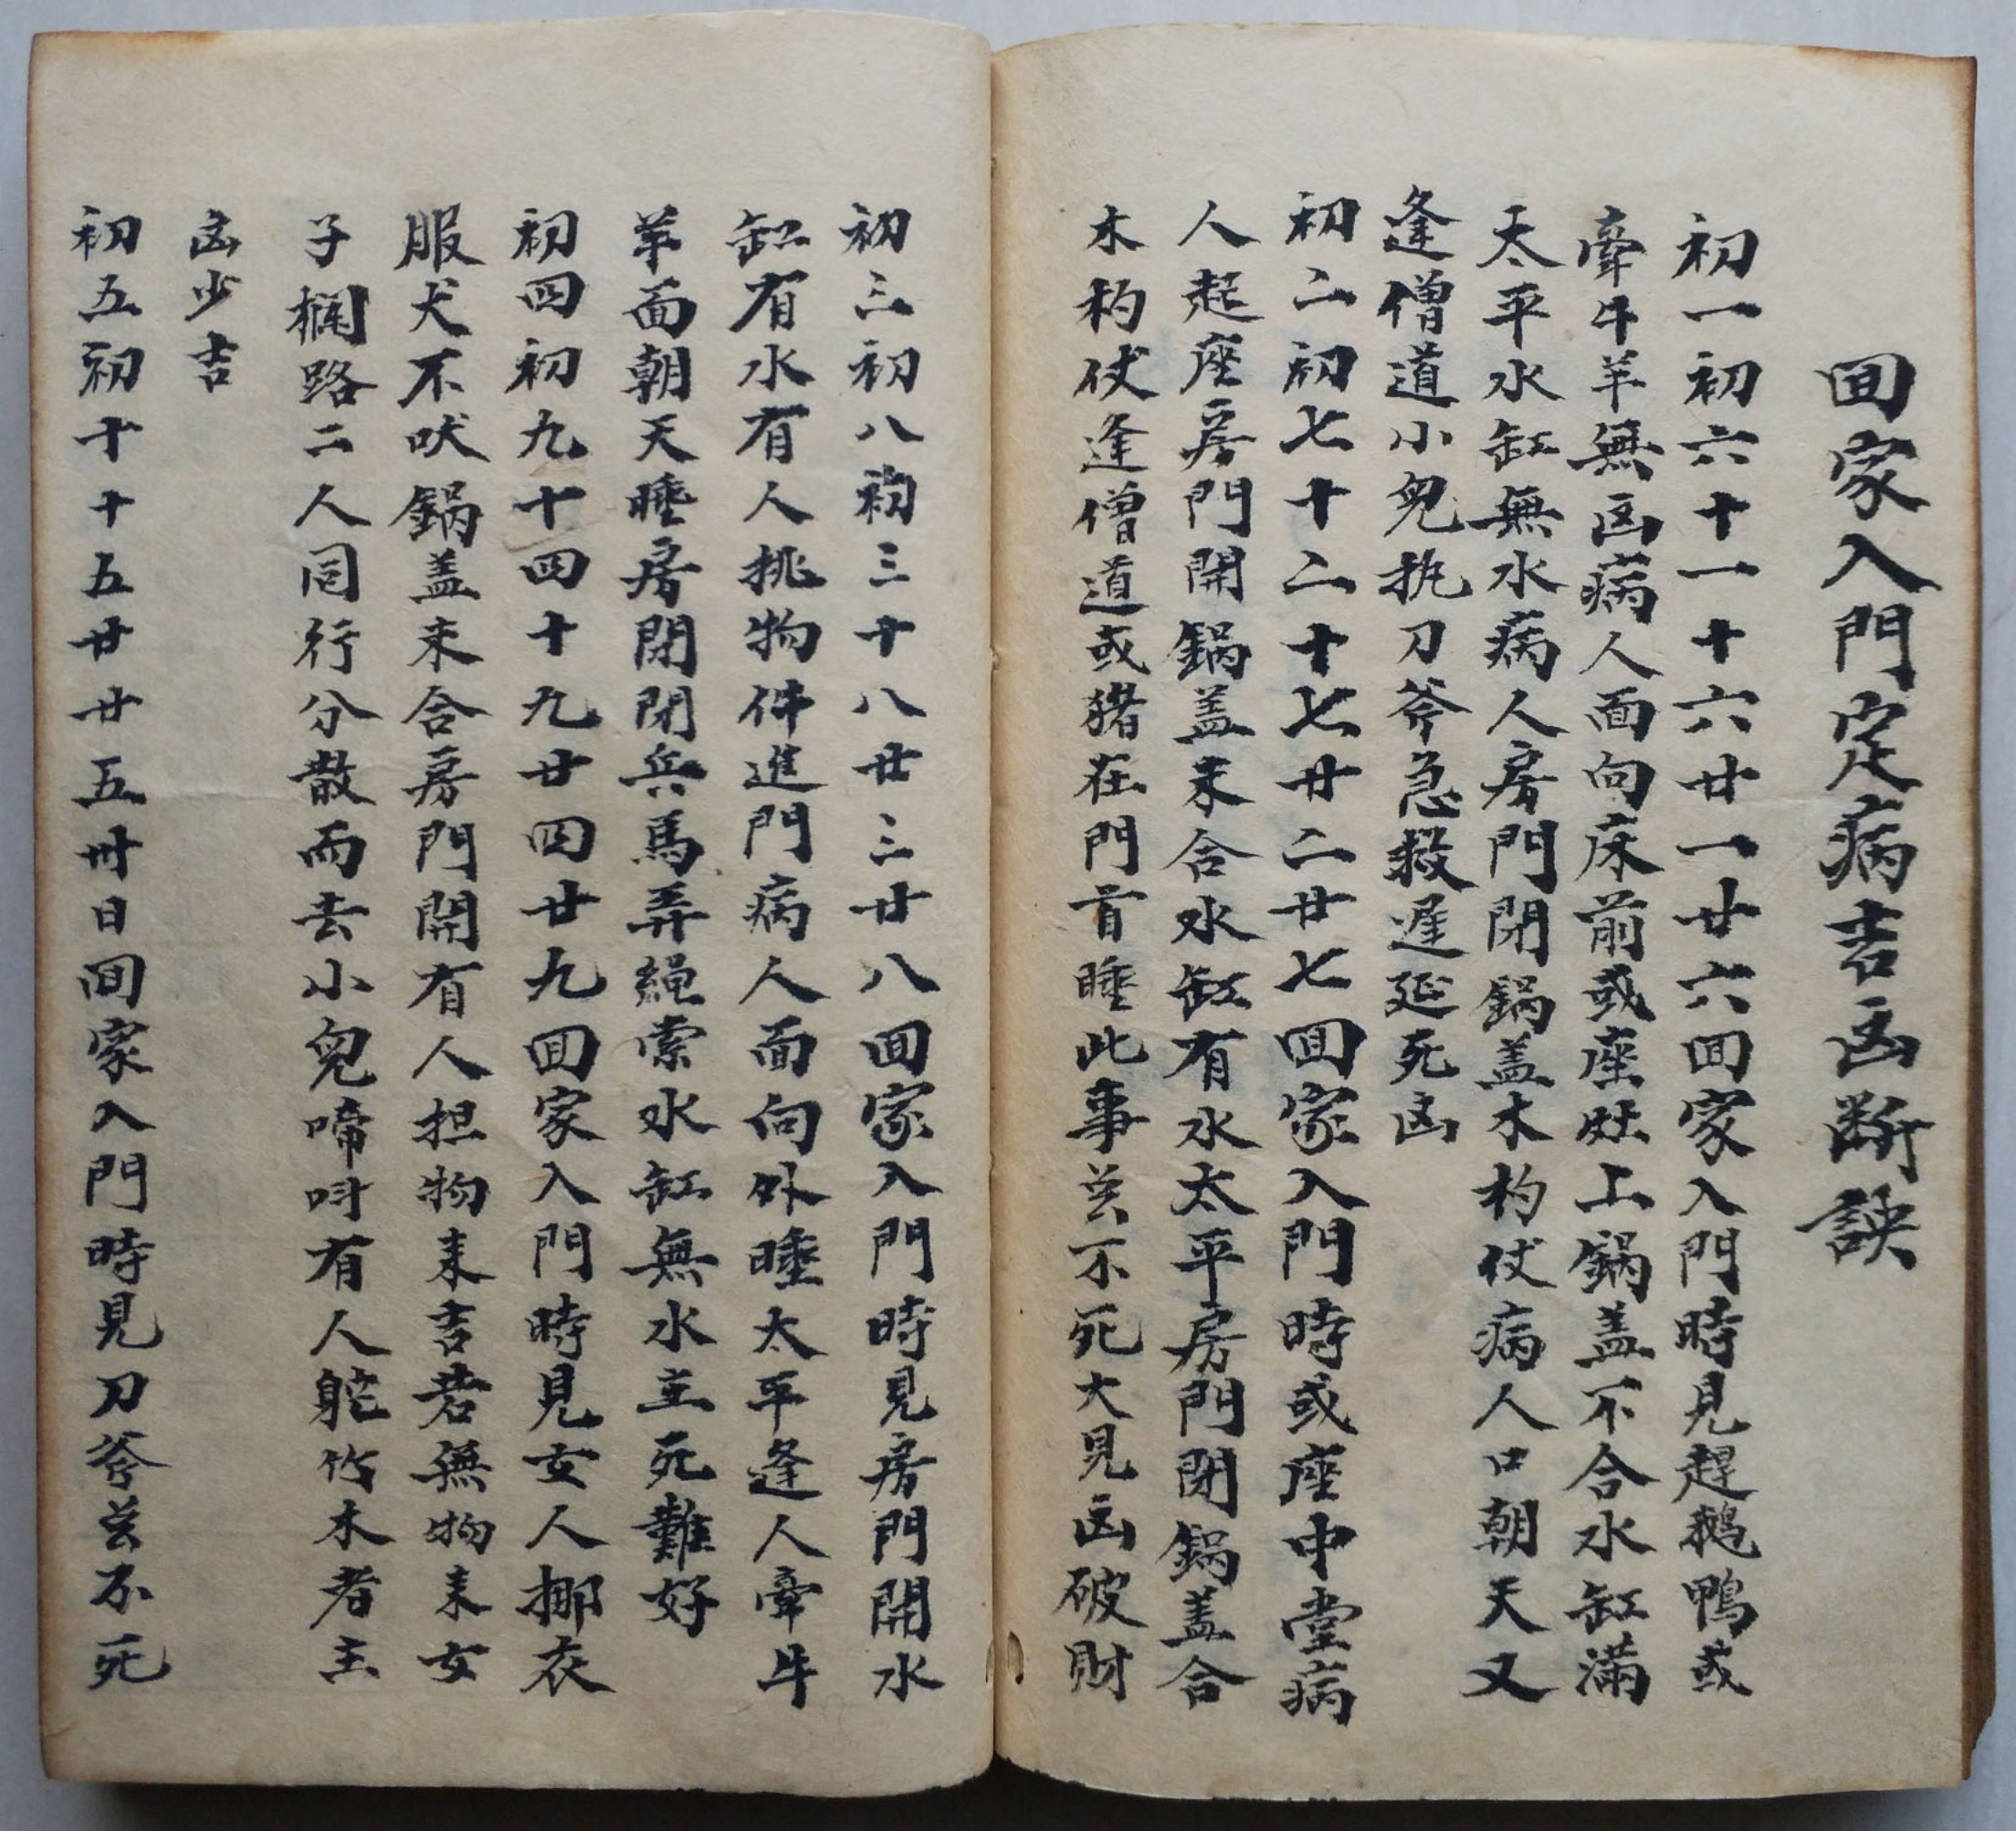 囬家入門定病吉凶断訣
初一初六十一十六廿一廿六囬家入門時見趕鵝鴨或
牽牛羊無凶病人面向床前或座灶上鍋盖不合水缸滿
太平水缸無水病人房門閉鍋盖木杓仗病人口朝天又
逢僧道小兒执刀斧急救遲延死凶
初二初七十二十七廿二廿七囬家入門時或座中堂病
人起座房門開鍋盖未合水缸有水太平房門閉鍋盖合
木杓仗逢僧道或猪在門首睡此事並不死大見凶破財
初三初八初三十八廿三廿八囬家入門時見房門開水
缸有水有人挑物件進門病人面向外睡太平逢人牽牛
羊面朝天睡房閉閉兵馬弄繩索水缸無水主死難好
初四初九十四十九廿四廿九囬家入門時見女人挪衣
服犬不吠鍋盖未合房門開有人担物来吉若無物来女
子欄路二人同行分散而去小兒啼呌有人䭾竹木者主
凶少吉
初五初十十五廿廿五卅日囬家入門時見刀斧並不死